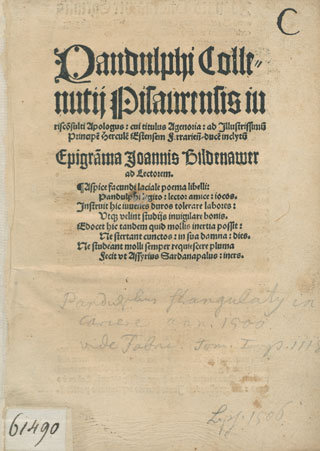 C
Pandulphi Colle-
nutij Pisaurensis iu
riscõsulti Apologus: cui titulus Agenoria: ad Illustrissimũ
Principẽ Herculẽ Estensem Ferrariẽ. ducẽ inclytũ
Epigrãma Joannis Hildenawer
ad Lectorem.
Aspice facundi laciale poema libelli:
Pandulphi cogito: lector amice: iocos.
Instruit hic iuuenes duros tolerare labores:
Utqз velint studijs inuigilare bonis.
Edocet hic tandem quid mollis inertia possit:
Ne stertant cunctos: in sua damna: dies.
Ne studeant molli semper requiescere pluma
Fecit vt Assyrius Sardanapalus: iners.
Pandulphus strangulatus in
carcere ann. 1500
vide Fabric. Tom.
Lps. 1506
61490